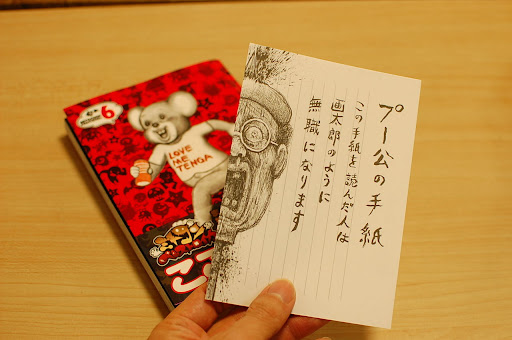 プー公の手紙
この手紙を読んだ人は
画太郎のように
無職になります
6
LOVE
ME
TENGA